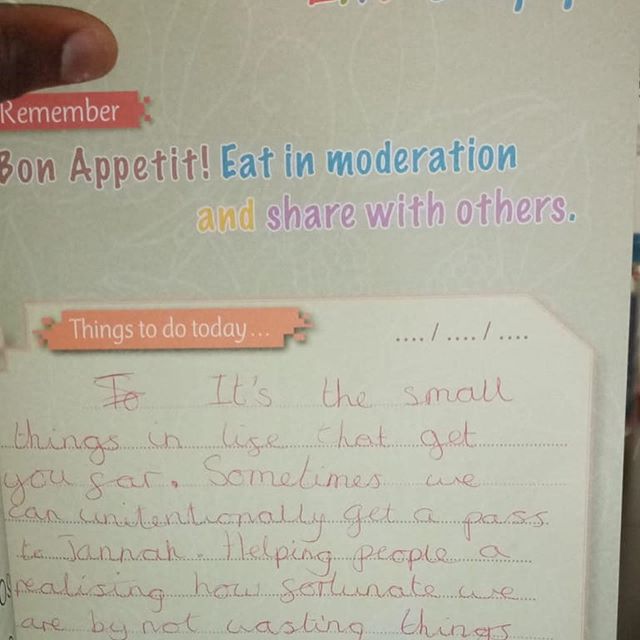 Remember
Bon Appetit! Eat in moderation
and share with others.
Things to do today...
..../..../....
To It's the small
things in life that get
you far. Sometimes we
can unitentionally get a pass
to Jannah. Helping people a
realising how fortunate we
are by not wasting things